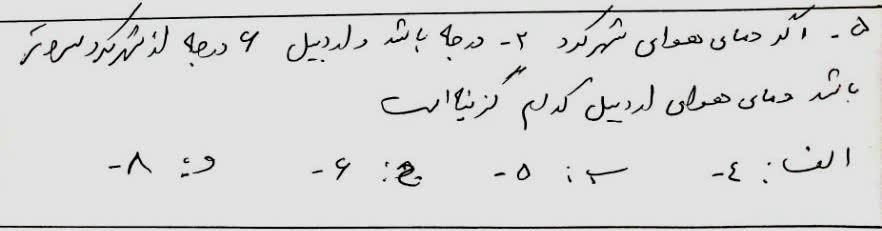 ۵- اگر دمای هوای شهرکرد ۲- درجه باشد و اردبیل ۶ درجه از شهرکرد سردتر
باشد دمای هوای اردبیل کدام گزینه است
الف: ۴- ب: ۵- ج: ۶- د: ۸-